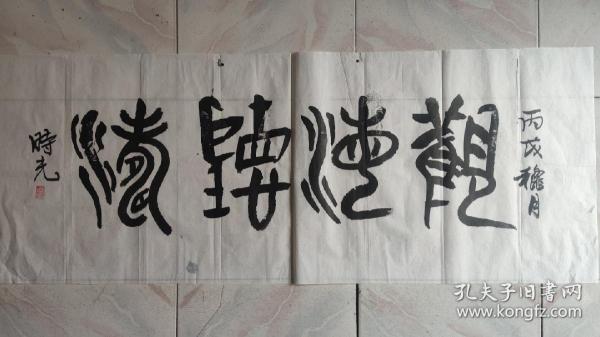 丙戌穐月
觀海聽濤
時光
孔夫子旧书网
www.kongfz.com